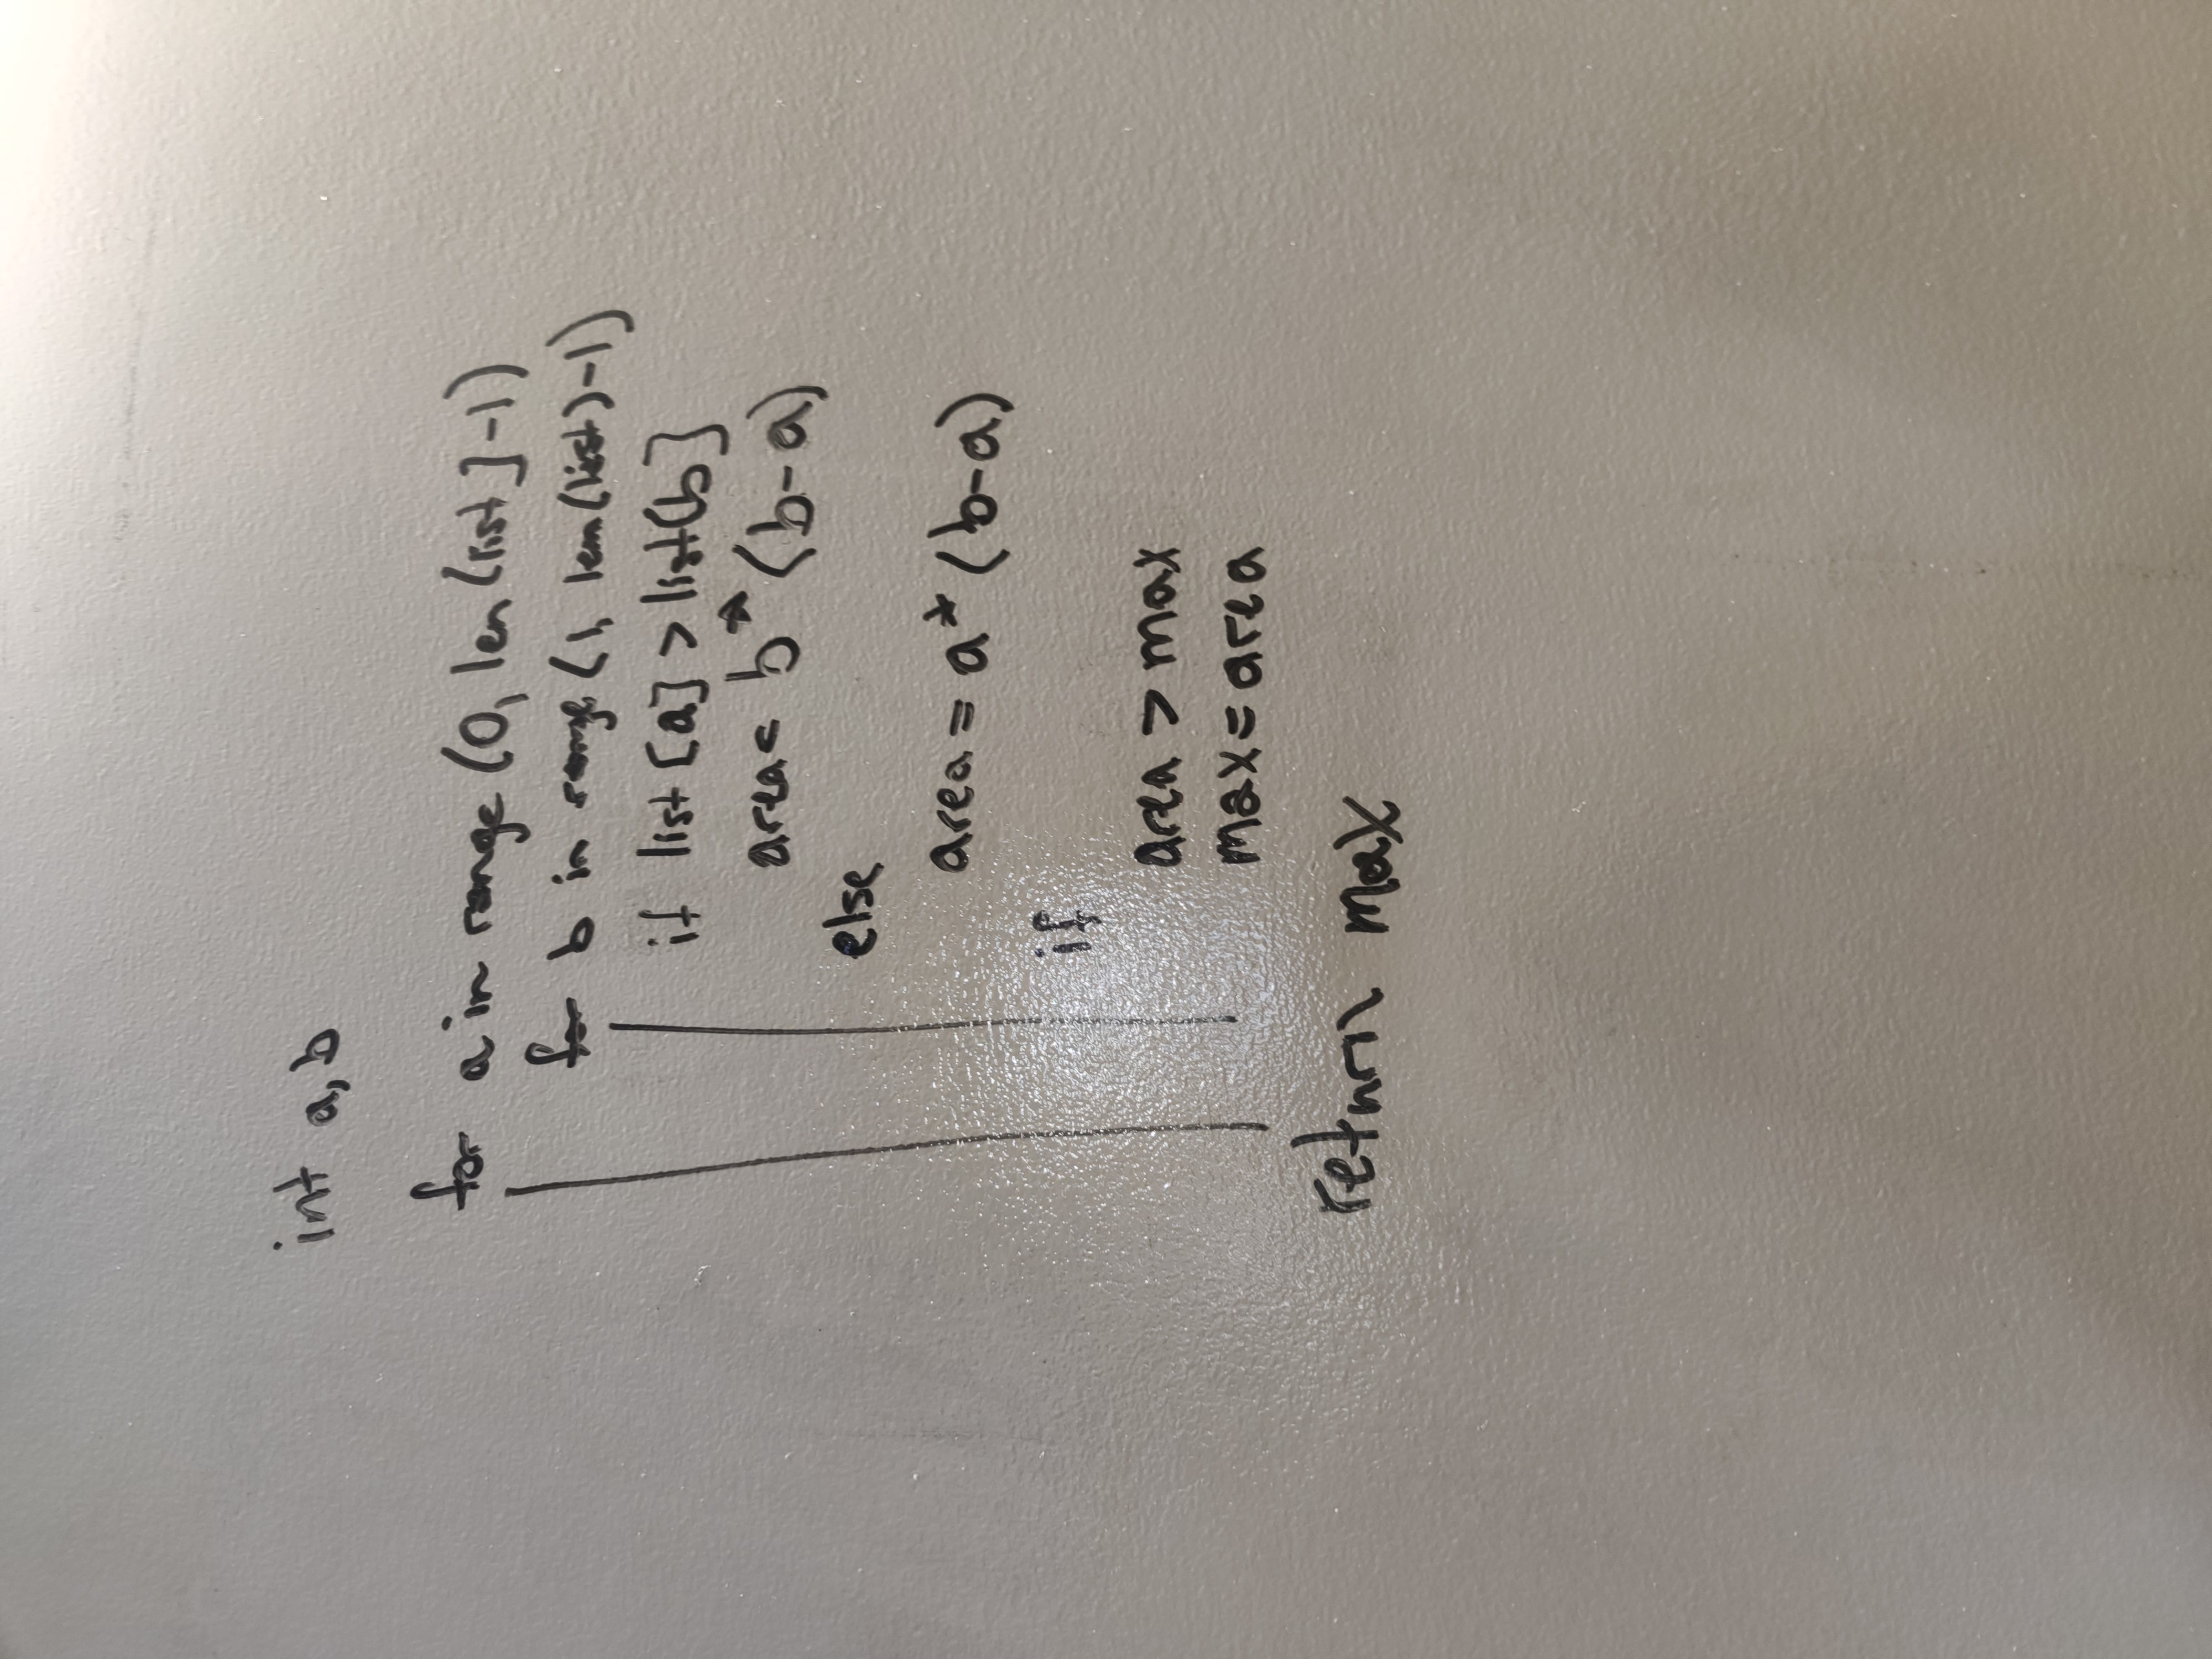 int a, b
for a in range (0, len(list]-1)
for b in range (1, len(list)-1)
if list [a] > list(b]
area= b* (b-a)
else
area = a* (b-a)
if
area > max
max = area
return max